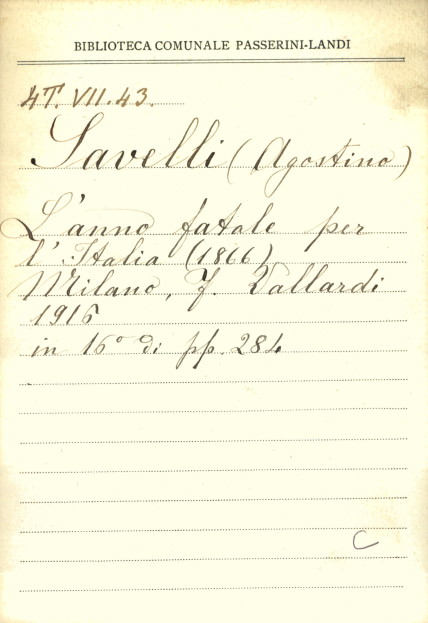 BIBLIOTECA COMUNALE PASSERINI-LANDI
4T. VII. 43.
Savelli (Agostino)
L'anno fatale per
l'Italia (1866)
Milano, F. Vallardi
1916
in 16° di pp. 284
C